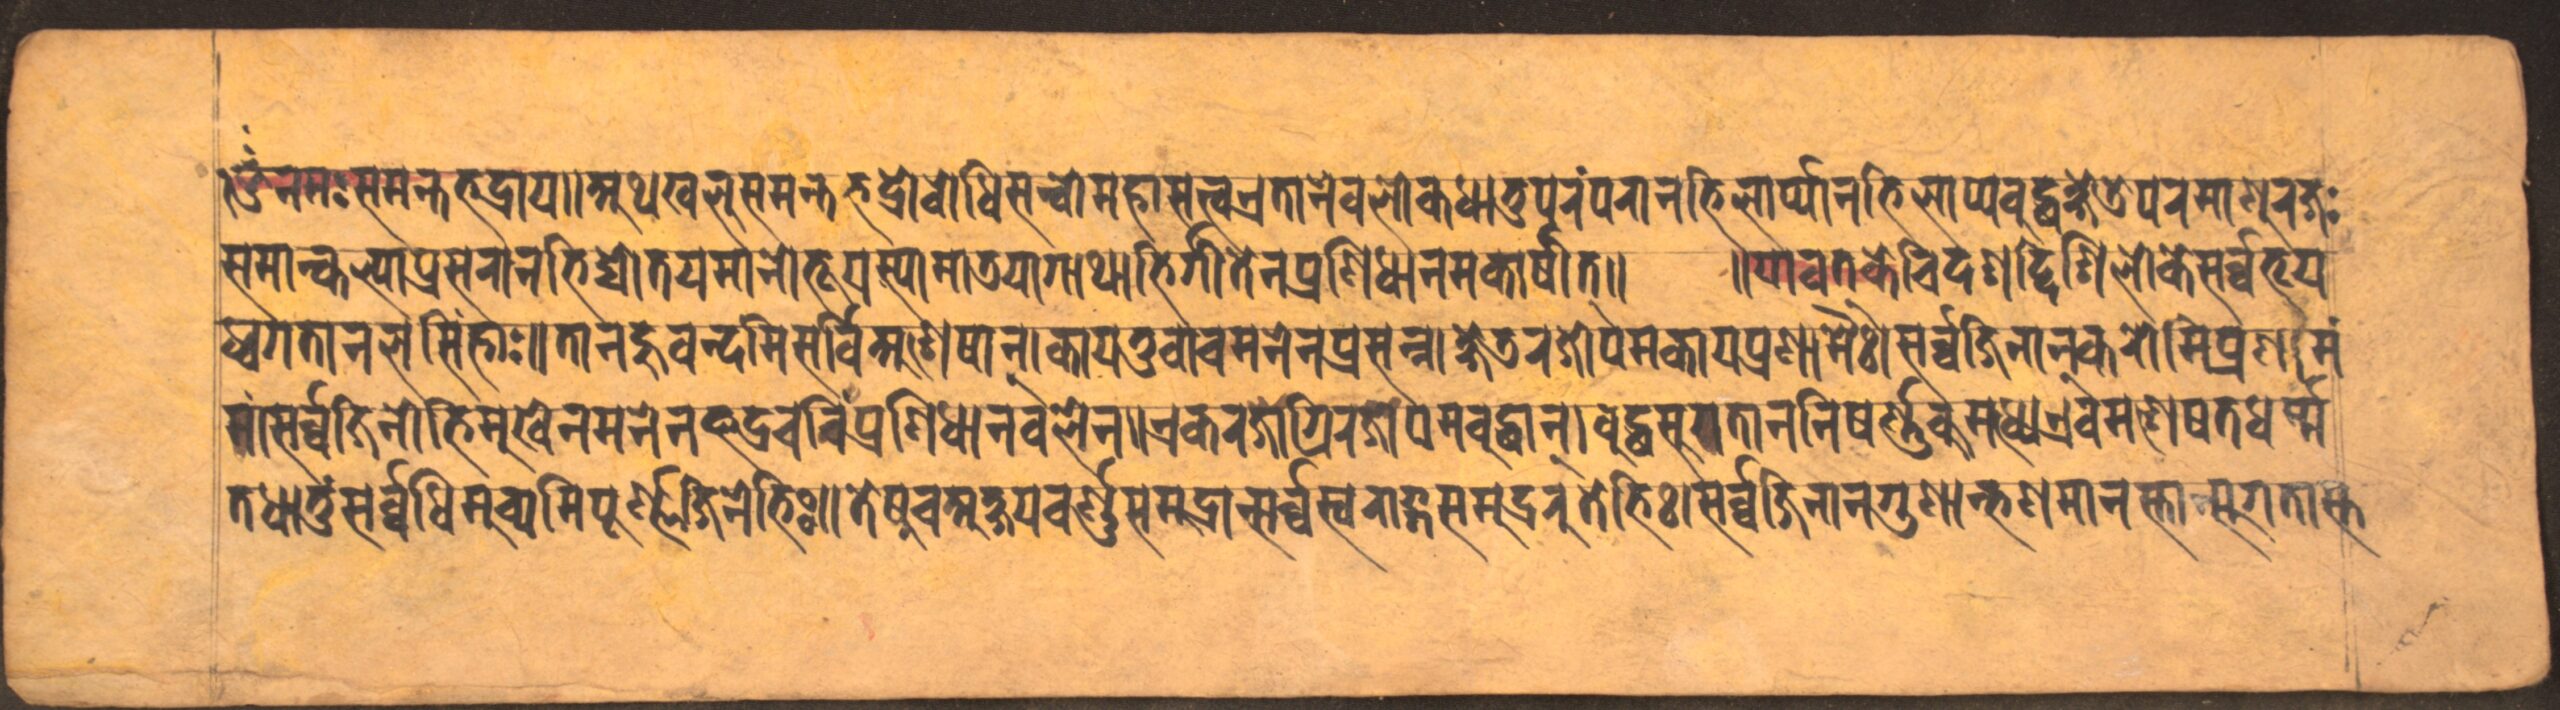 ॐ नमः समन्तभद्राय॥ अथ खलु समन्तभद्रो बोधिसत्वो महासत्व एतानेव लोकधातुपरंपरानभिलाप्यानभिलाप्यबुद्धक्षेत्रपरमाणुरजः
समान्कल्पाप्रसरानभिद्योतयमानो भूयस्यामात्रया गाथाभिर्गीतेन प्रणिधानमकार्षीत्॥ ॥यावत केचि दशद्दिशि लोके सर्व्वतृय
ध्वगता नलसिंहाः॥ तानहु वन्दमि सर्वि अशेषान्। कायतु वाच मनेन प्रसन्न। क्षेत्ररजोपमकायप्रणामैः। सर्व्वजिनान् करोमि प्रणामं
सर्व्वजिनोभिमुखेन मनेन भद्रचरिंप्रणिधानवलेन॥ एकरजाग्रि रजोपमबुद्धान्। बुद्धसुगतान निषर्ण्णकु मध्य एवमशेषत धर्म्म
तधातुं सर्व्वधिमुच्यमि पूर्ण्ण जिनेभिः॥ तेषु च अक्षयवर्ण्णसमुद्रान्सर्व्वस्वराङ्गसमुद्ररुतेभिः। सर्व्वजिनान गुणान्भणमानस्तान्सुगतास्त